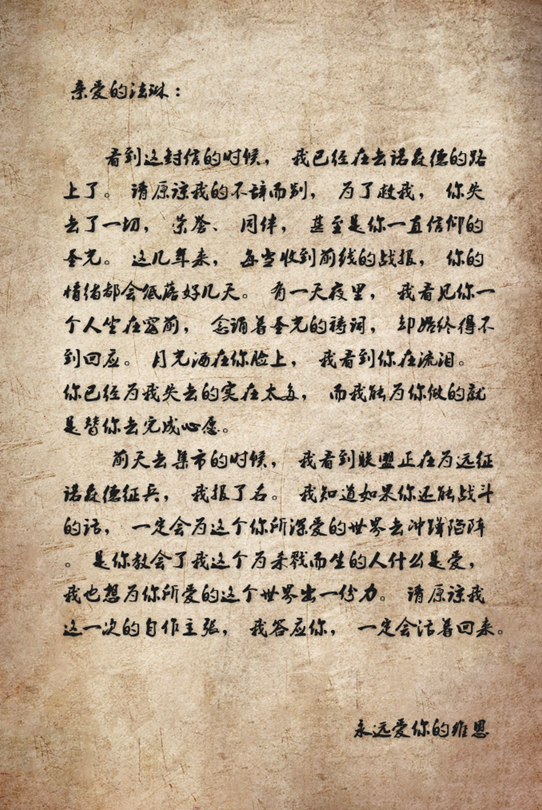 亲爱的法琳：
看到这封信的时候， 我已经在去诺森德的路
上了。 请原谅我的不辞而别， 为了救我， 你失
去了一切， 荣誉、 同伴， 甚至是你一直信仰的
圣光。 这几年来， 每当收到前线的战报， 你的
情绪都会低落好几天。 有一天夜里， 我看见你一
个人坐在窗前， 念诵着圣光的祷词， 却始终得不
到回应。 月光洒在你脸上， 我看到你在流泪。
你已经为我失去的实在太多， 而我能为你做的就
是替你去完成心愿。
前天去集市的时候， 我看到联盟正在为远征
诺森德征兵， 我报了名。 我知道如果你还能战斗
的话， 一定会为这个你所深爱的世界去冲锋陷阵
。 是你教会了我这个为杀戮而生的人什么是爱，
我也想为你所爱的这个世界出一份力。 请原谅我
这一次的自作主张， 我答应你， 一定会活着回来。
永远爱你的维恩